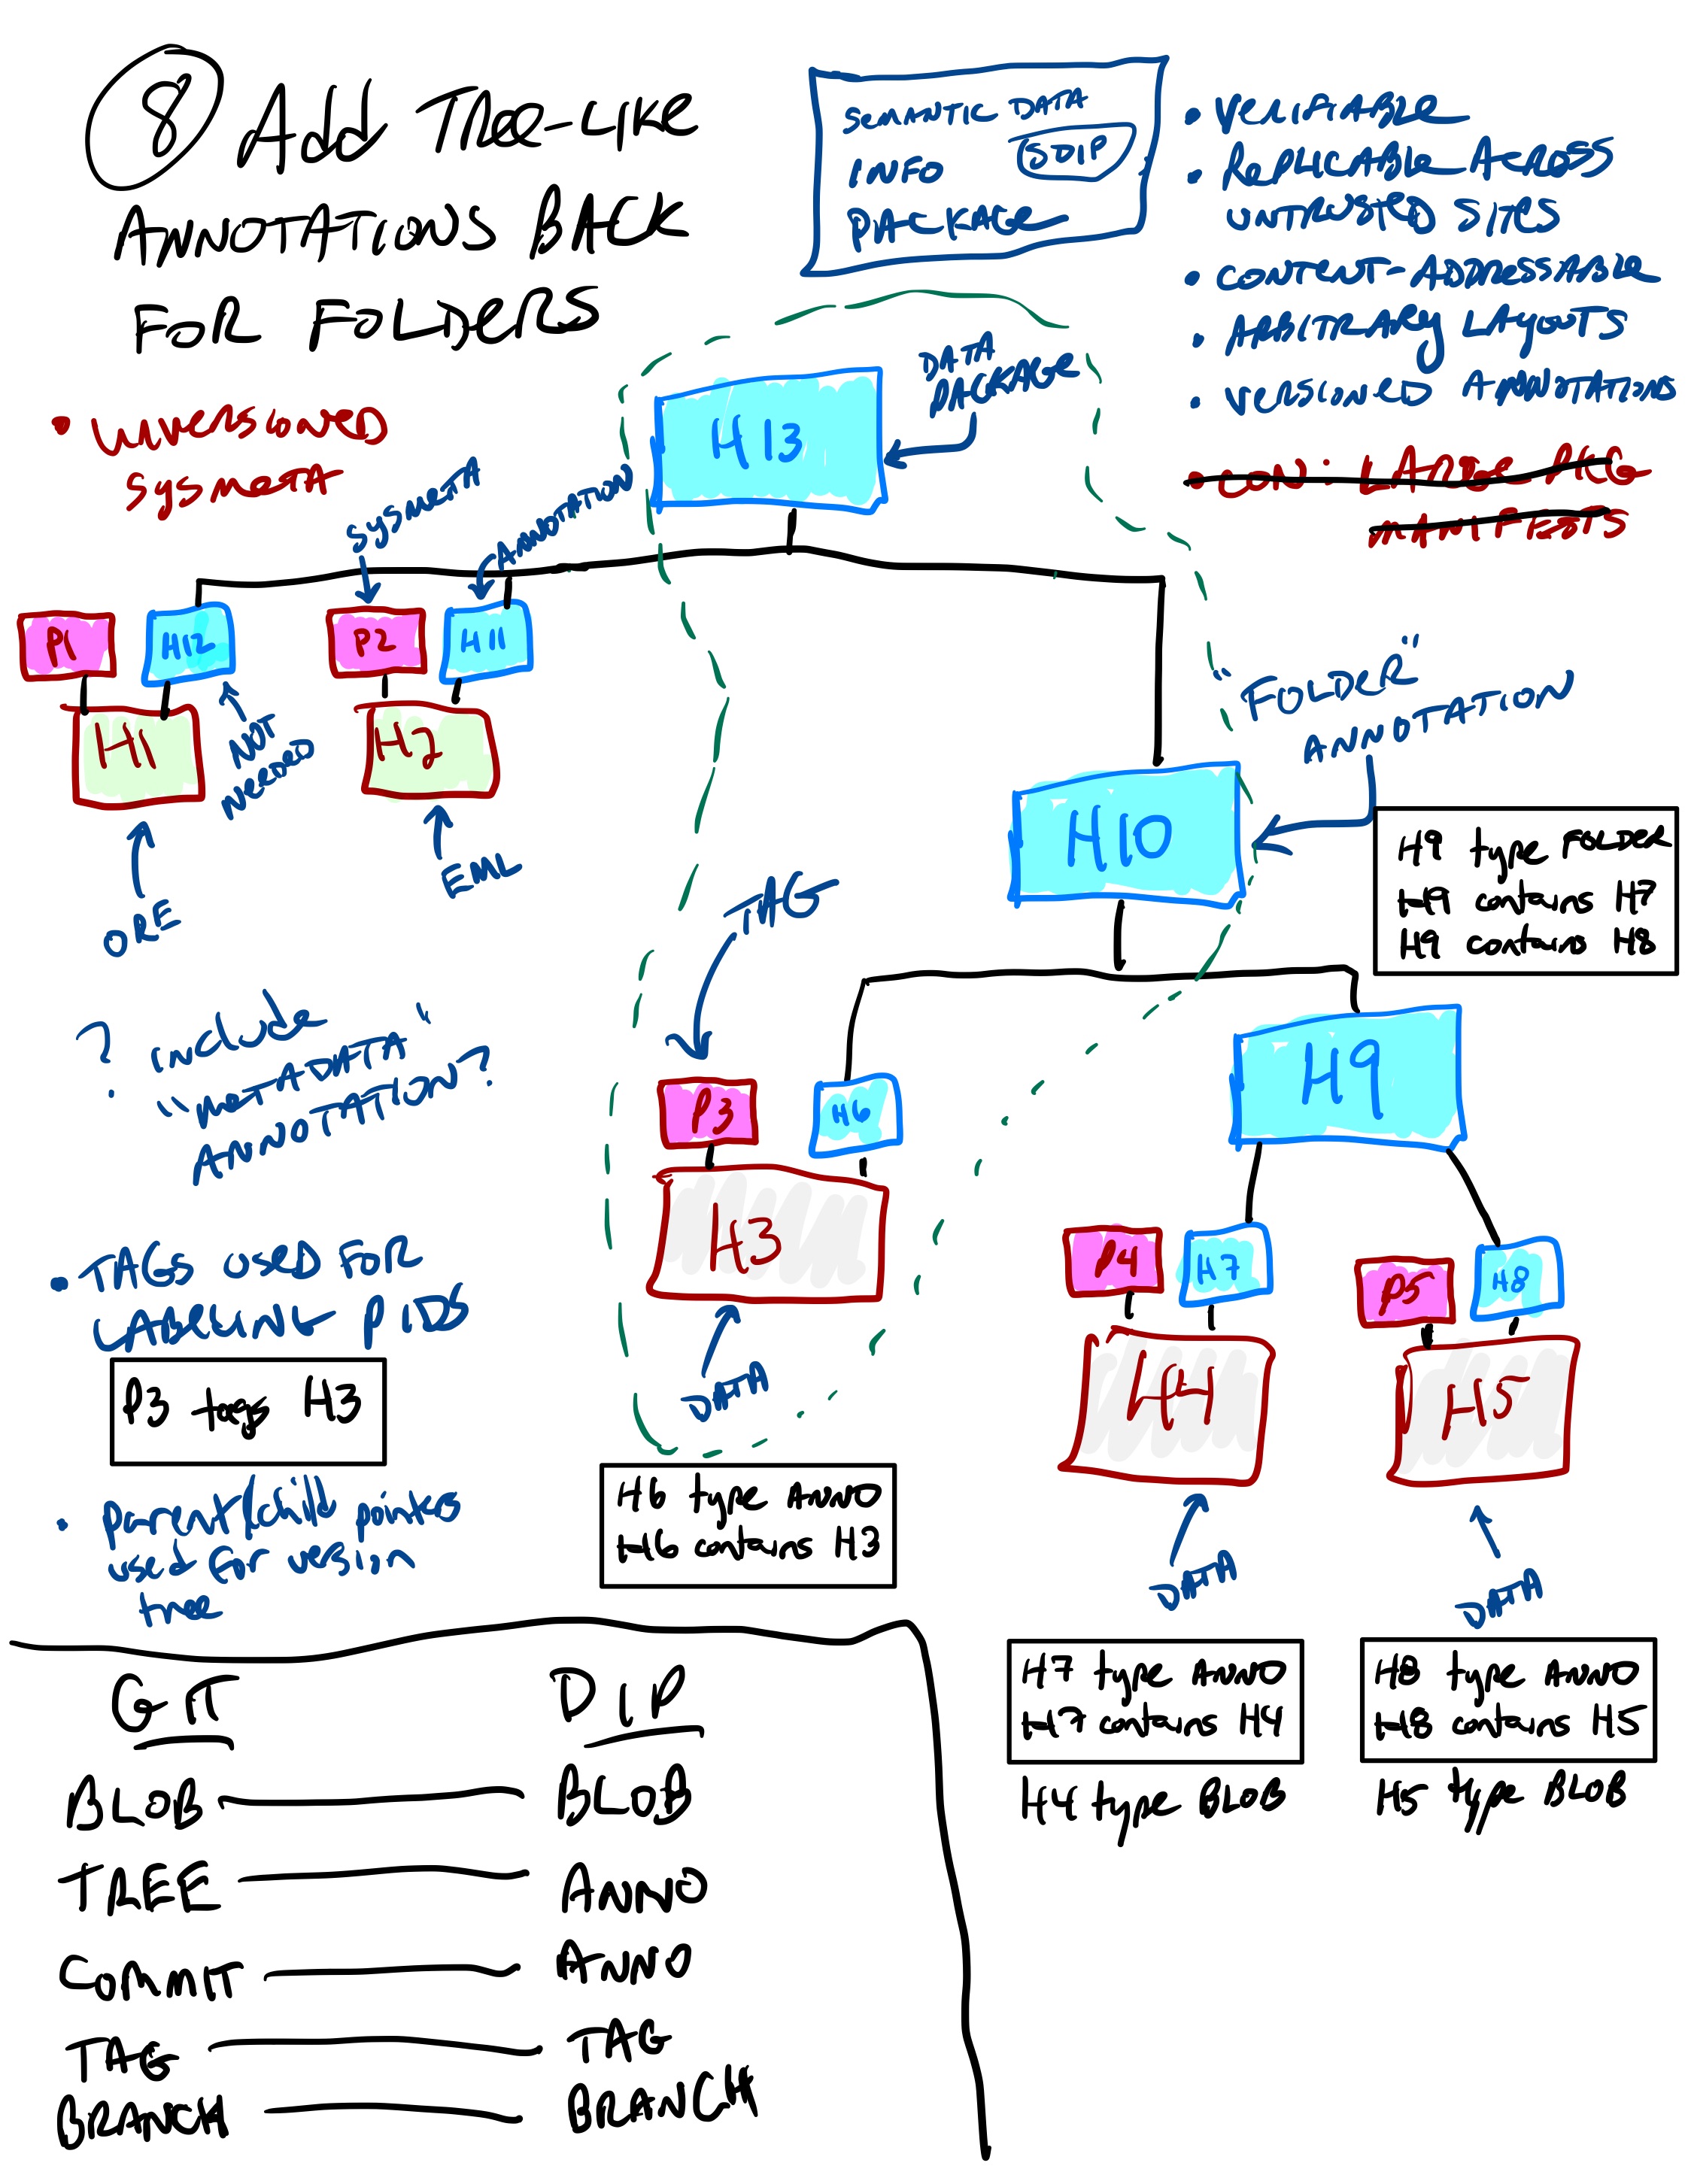 8 Add Tree-Like
Annotations Back
For Folders
Semantic Data
Info SDIP
Package
• Verifiable
• Replicable Across
Untrusted Sites
• Content-Addressable
• Arbitrary Layouts
• Versioned Annotations
• Con: Large Pkg
Manifests
• Unversioned
Sysmeta
Data
Package
H13
Sysmeta
Annotation
P1
H12
P2
H11
H1
H2
Not
Needed
ORE
EML
"Folder"
Annotation
H10
H9 type Folder
H9 contains H7
H9 contains H8
Tag
? include
"metadata"
Annotation?
H9
P3
H6
H3
Data
P4
H7
P5
H8
H4
H5
• Tags used for
Labeling PIDs
P3 tags H3
• parent/child pointers
used for version
tree
H6 type Anno
H6 contains H3
Data
Data
H7 type Anno
H7 contains H4
H4 type Blob
H8 type Anno
H8 contains H5
H5 type Blob
GIT DIP
BLOB BLOB
TREE ANNO
COMMIT ANNO
TAG TAG
BRANCH BRANCH